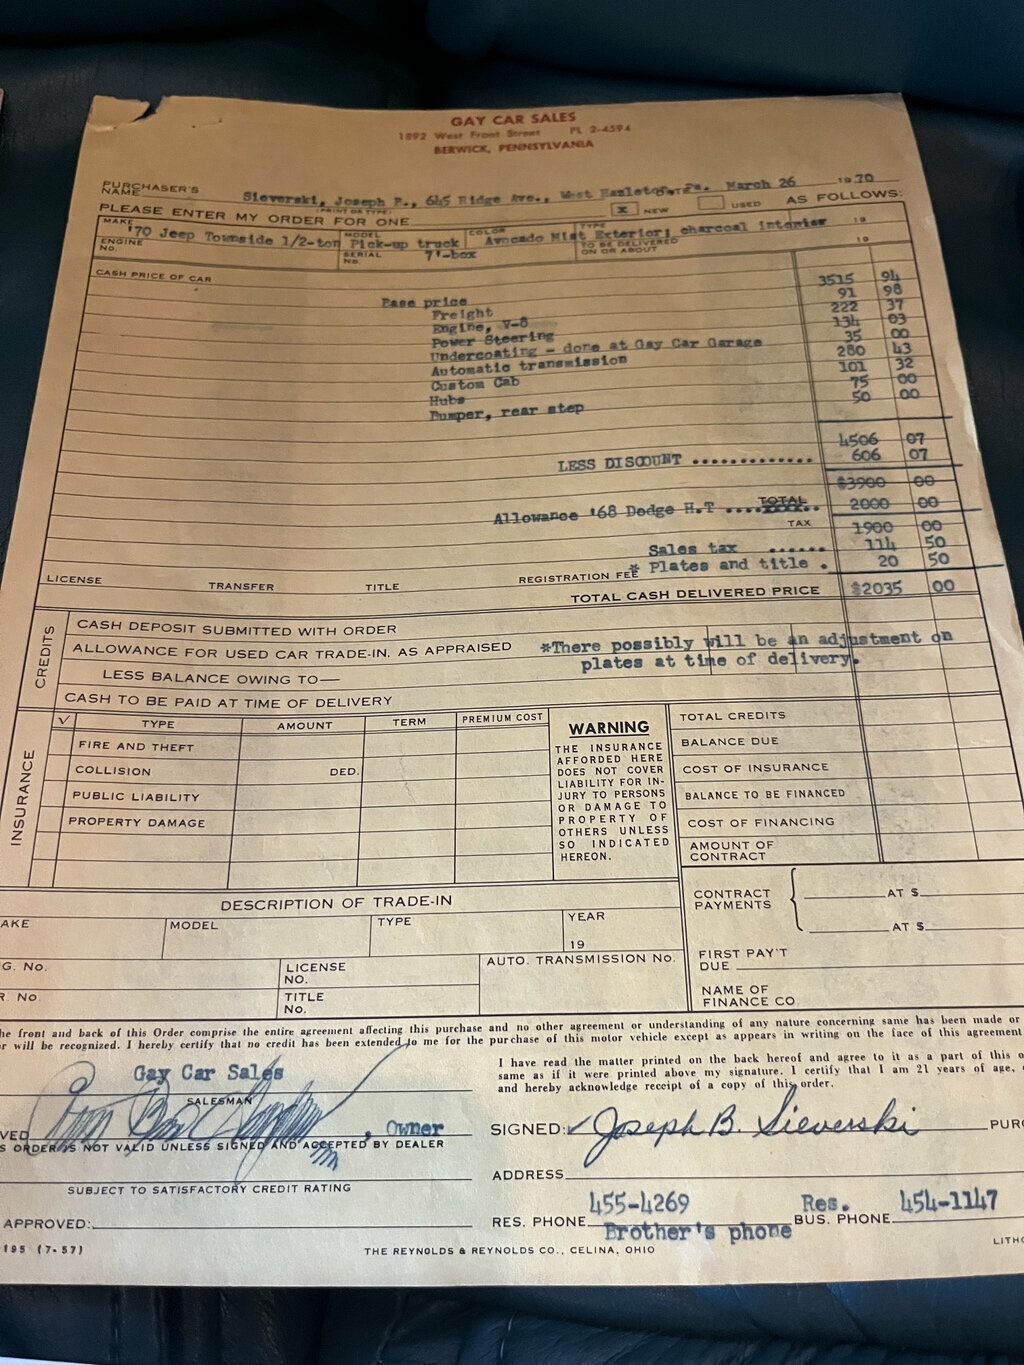 GAY CAR SALES
1892 West Front Street PL 2-4594
BERWICK, PENNSYLVANIA
PURCHASER'S NAME Sieverski, Joseph B., 645 Ridge Ave., West Hazleton, Pa. March 26 1970
(PRINT OR TYPE)
PLEASE ENTER MY ORDER FOR ONE x NEW USED AS FOLLOWS:
MAKE '70 Jeep Townside 1/2-ton MODEL Pick-up truck COLOR Avocado Mist Exterior; TYPE charcoal interior 19
ENGINE NO. SERIAL NO. 7'-box TO BE DELIVERED ON OR ABOUT 19
CASH PRICE OF CAR
Base price 3515 94
Freight 91 98
Engine, V-8 222 37
Power Steering 134 03
Undercoating - done at Gay Car Garage 35 00
Automatic transmission 280 43
Custom Cab 101 32
Hubs 75 00
Bumper, rear step 50 00
4506 07
LESS DISCOUNT ............. 606 07
$3900 00
TOTAL
Allowance '68 Dodge H.T .... 2000 00
TAX 1900 00
Sales tax ...... 114 50
* Plates and title . 20 50
LICENSE TRANSFER TITLE REGISTRATION FEE
TOTAL CASH DELIVERED PRICE $2035 00
CREDITS
CASH DEPOSIT SUBMITTED WITH ORDER
ALLOWANCE FOR USED CAR TRADE-IN, AS APPRAISED
*There possibly will be an adjustment on
plates at time of delivery.
LESS BALANCE OWING TO—
CASH TO BE PAID AT TIME OF DELIVERY
INSURANCE
✓ TYPE AMOUNT TERM PREMIUM COST
FIRE AND THEFT
COLLISION DED.
PUBLIC LIABILITY
PROPERTY DAMAGE
WARNING
THE INSURANCE
AFFORDED HERE
DOES NOT COVER
LIABILITY FOR IN-
JURY TO PERSONS
OR DAMAGE TO
PROPERTY OF
OTHERS UNLESS
SO INDICATED
HEREON.
TOTAL CREDITS
BALANCE DUE
COST OF INSURANCE
BALANCE TO BE FINANCED
COST OF FINANCING
AMOUNT OF CONTRACT
DESCRIPTION OF TRADE-IN
AKE MODEL TYPE YEAR 19
G. NO. LICENSE NO. AUTO. TRANSMISSION NO.
R. NO. TITLE NO.
CONTRACT PAYMENTS AT $
AT $
FIRST PAY'T DUE
NAME OF FINANCE CO
he front and back of this Order comprise the entire agreement affecting this purchase and no other agreement or understanding of any nature concerning same has been made or
or will be recognized. I hereby certify that no credit has been extended to me for the purchase of this motor vehicle except as appears in writing on the face of this agreement
I have read the matter printed on the back hereof and agree to it as a part of this o
same as if it were printed above my signature. I certify that I am 21 years of age,
and hereby acknowledge receipt of a copy of this order.
Gay Car Sales
SALESMAN
VED , Owner
S ORDER IS NOT VALID UNLESS SIGNED AND ACCEPTED BY DEALER
SIGNED: ✓ Joseph B. Sieverski PUR
SUBJECT TO SATISFACTORY CREDIT RATING
ADDRESS
APPROVED:
RES. PHONE 455-4269 Res. BUS. PHONE 454-1147
Brother's phone
195 (7-57) THE REYNOLDS & REYNOLDS CO., CELINA, OHIO LITHO